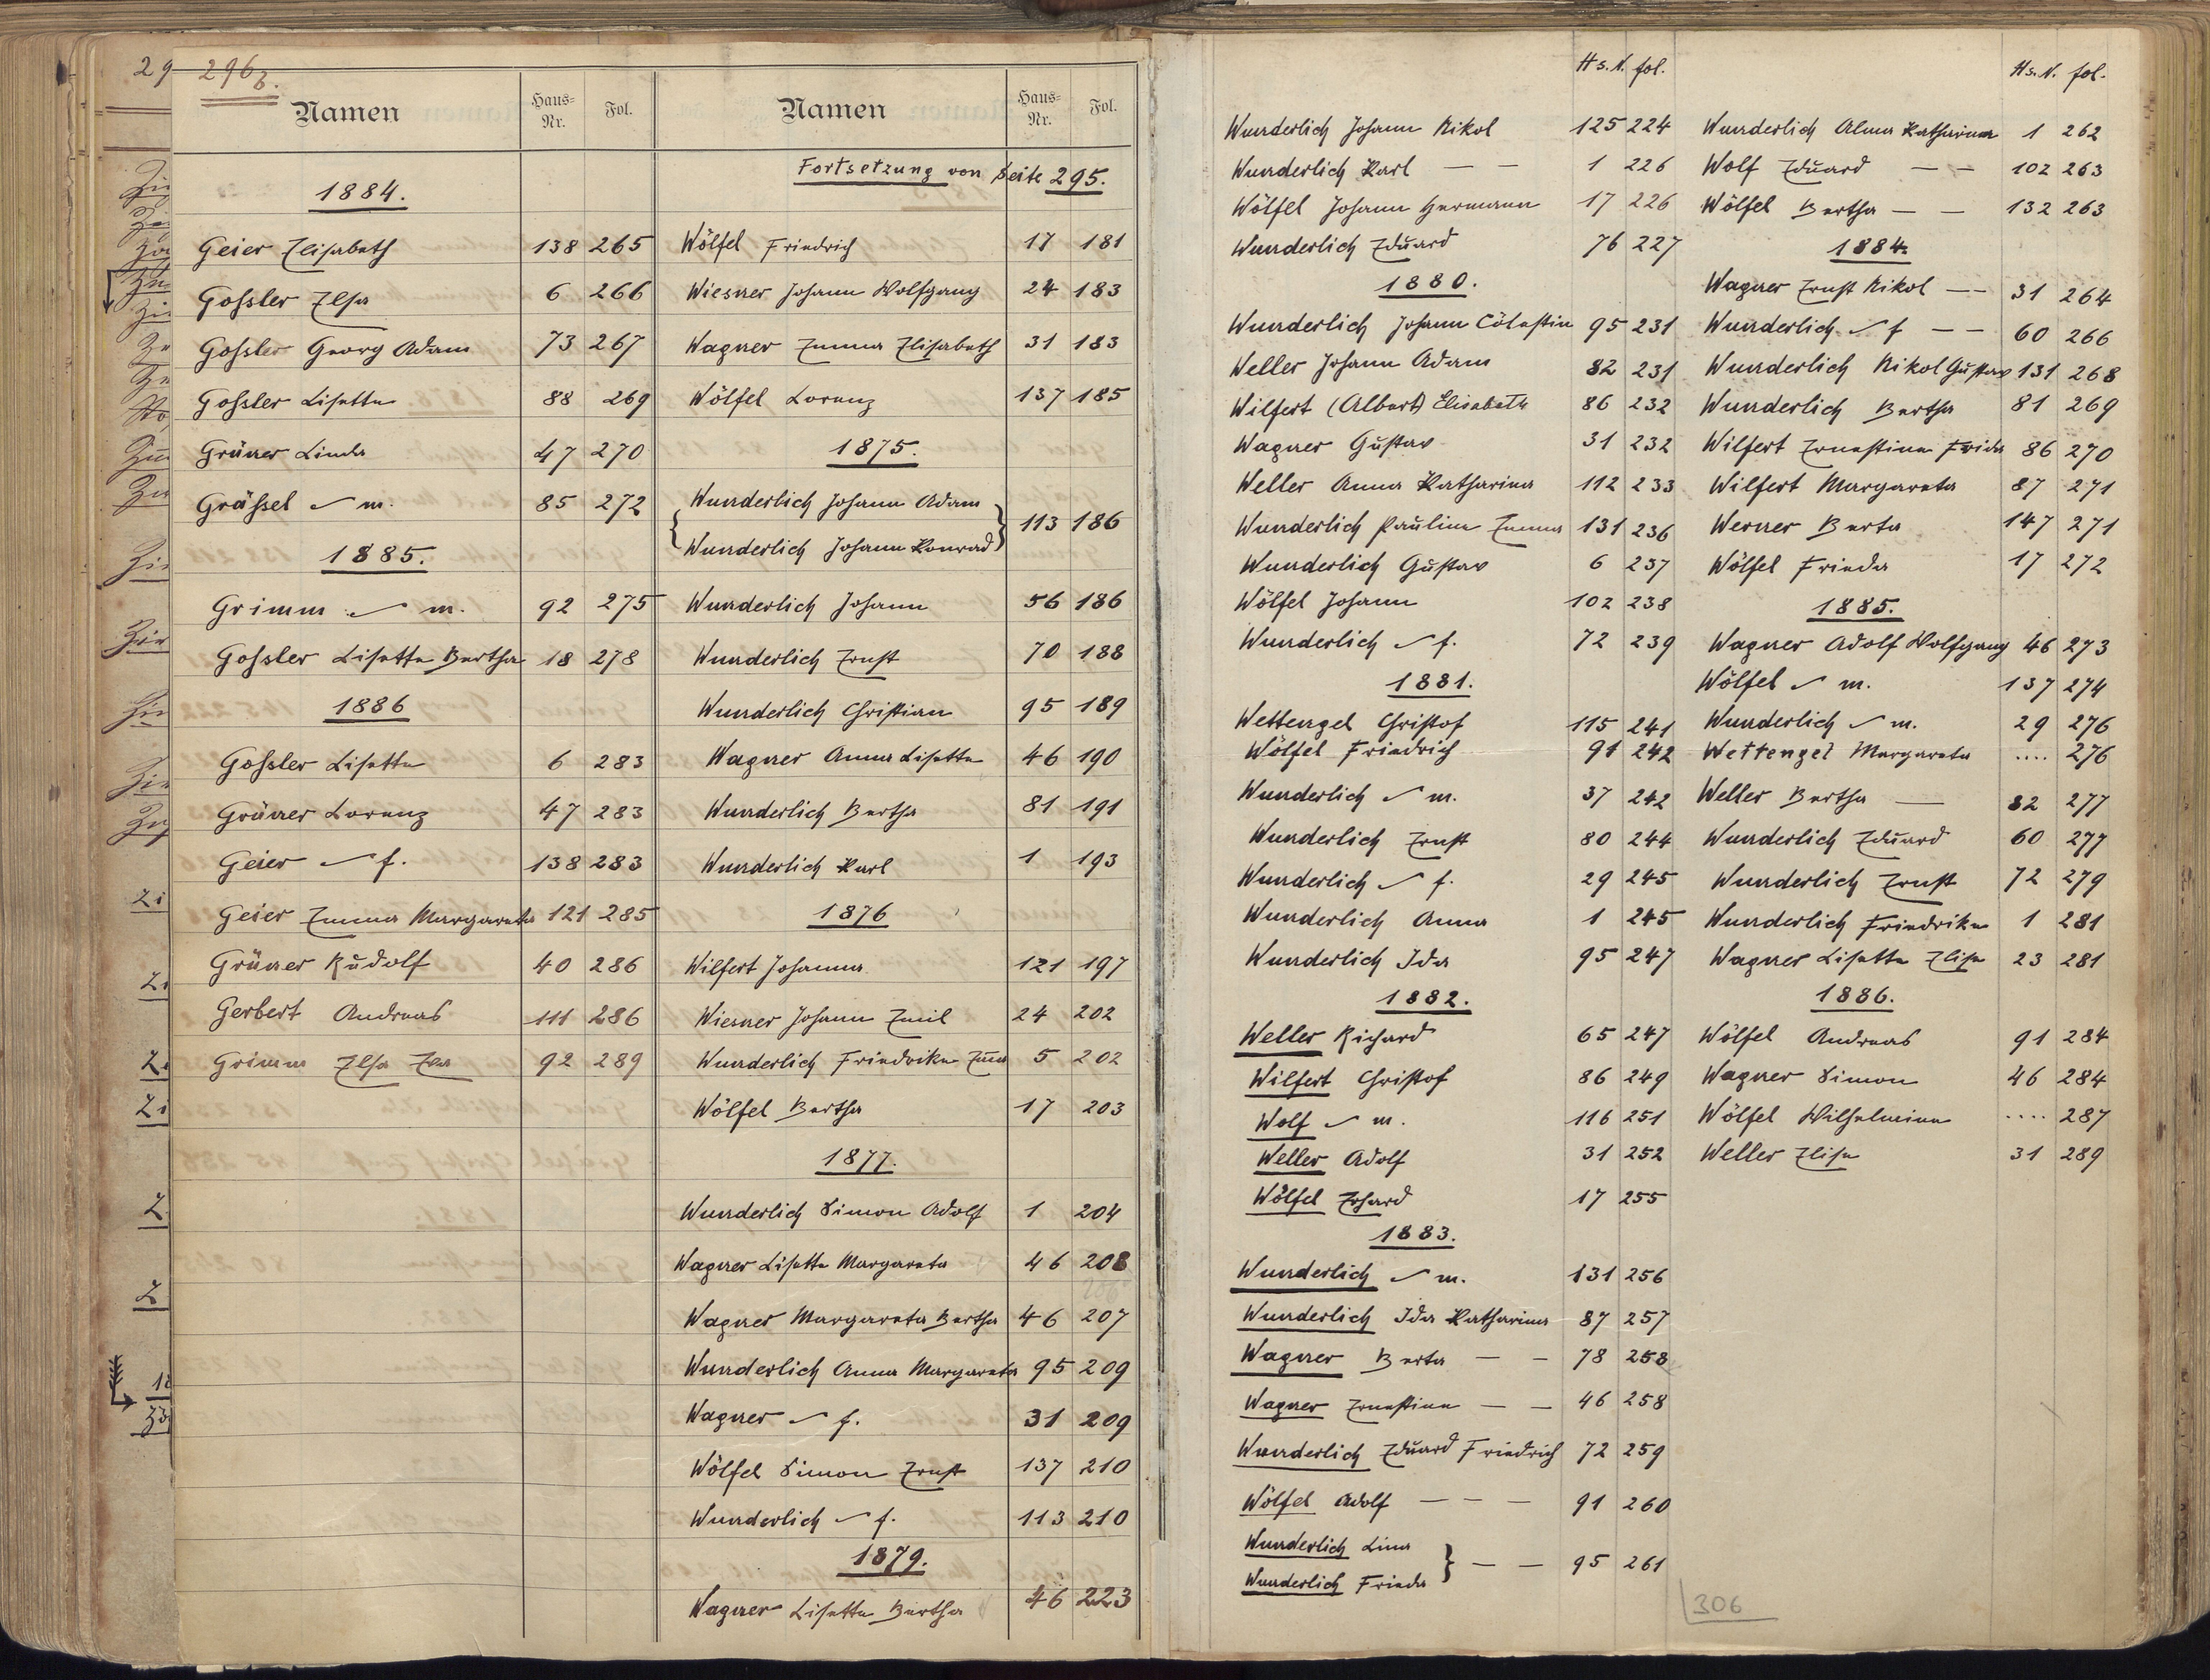 29
296b.
Namen Haus-Nr. Fol.
1884.
Geier Elisabeth 138 265
Goßler Elsa 6 266
Goßler Georg Adam 73 267
Goßler Lisette 88 269
Grüner Linda 47 270
Gräßel m. 85 272
1885.
Grimm m. 92 275
Goßler Lisette Bertha 18 278
1886
Goßler Lisette 6 283
Grüner Lorenz 47 283
Geier f. 138 283
Geier Emma Margareta 121 285
Grüner Rudolf 40 286
Gerbert Andreas 111 286
Grimm Elsa Eva 92 289
Namen Haus-Nr. Fol.
Fortsetzung von Seite 295.
Wölfel Friedrich 17 181
Wiesner Johann Wolfgang 24 183
Wagner Emma Elisabeth 31 183
Wölfel Lorenz 137 185
1875.
{ Wunderlich Johann Adam
Wunderlich Johann Konrad } 113 186
Wunderlich Johann 56 186
Wunderlich Ernst 70 188
Wunderlich Christian 95 189
Wagner Anna Lisette 46 190
Wunderlich Bertha 81 191
Wunderlich Karl 1 193
1876
Wilfert Johanna 121 197
Wiesner Johann Emil 24 202
Wunderlich Friedrike 5 202
Wölfel Bertha 17 203
1877.
Wunderlich Simon Adolf 1 204
Wagner Lisette Margareta 46 208
Wagner Margareta Bertha 46 207
Wunderlich Anna Margareta 95 209
Wagner f. 31 209
Wölfel Simon Ernst 137 210
Wunderlich f. 113 210
1879.
Wagner Lisette Bertha 46 223
Hs. N. fol.
Wunderlich Johann Nikol 125 224
Wunderlich Karl — — 1 226
Wölfel Johann Hermann 17 226
Wunderlich Eduard 76 227
1880.
Wunderlich Johann Cölestin 95 231
Weller Johann Adam 82 231
Wilfert (Albert) Elisabeth 86 232
Wagner Gustav 31 232
Weller Anna Katharina 112 233
Wunderlich Paulina Emma 131 236
Wunderlich Gustav 6 237
Wölfel Johann 102 238
Wunderlich f. 72 239
1881.
Wettengel Christof 115 241
Wölfel Friedrich 91 242
Wunderlich m. 37 242
Wunderlich Ernst 80 244
Wunderlich f. 29 245
Wunderlich Anna 1 245
Wunderlich Ida 95 247
1882.
Weller Richard 65 247
Wilfert Christof 86 249
Wolf m. 116 251
Weller Adolf 31 252
Wölfel Erhard 17 255
1883.
Wunderlich m. 131 256
Wunderlich Ida Katharina 87 257
Wagner Berta — — 78 258
Wagner Ernestine — — 46 258
Wunderlich Eduard Friedrich 72 259
Wölfel Adolf — — — 91 260
Wunderlich Lina
Wunderlich Frieda } — — 95 261
Hs. N. fol.
Wunderlich Alma Katharina 1 262
Wolf Eduard — — 102 263
Wölfel Bertha — — 132 263
1884.
Wagner Ernst Nikol — 31 264
Wunderlich f — — 60 266
Wunderlich Nikol Gustav 131 268
Wunderlich Bertha 81 269
Wilfert Ernestine Frida 86 270
Wilfert Margareta 87 271
Werner Berta 147 271
Wölfel Frieda 17 272
1885.
Wagner Adolf Wolfgang 46 273
Wölfel m. 137 274
Wunderlich m. 29 276
Wettengel Margareta .... 276
Weller Bertha — 82 277
Wunderlich Eduard 60 277
Wunderlich Ernst 72 279
Wunderlich Friedrike 1 281
Wagner Lisette Elise 23 281
1886.
Wölfel Andreas 91 284
Wagner Simon 46 284
Wölfel Wilhelmine .... 287
Weller Elise 31 289
306